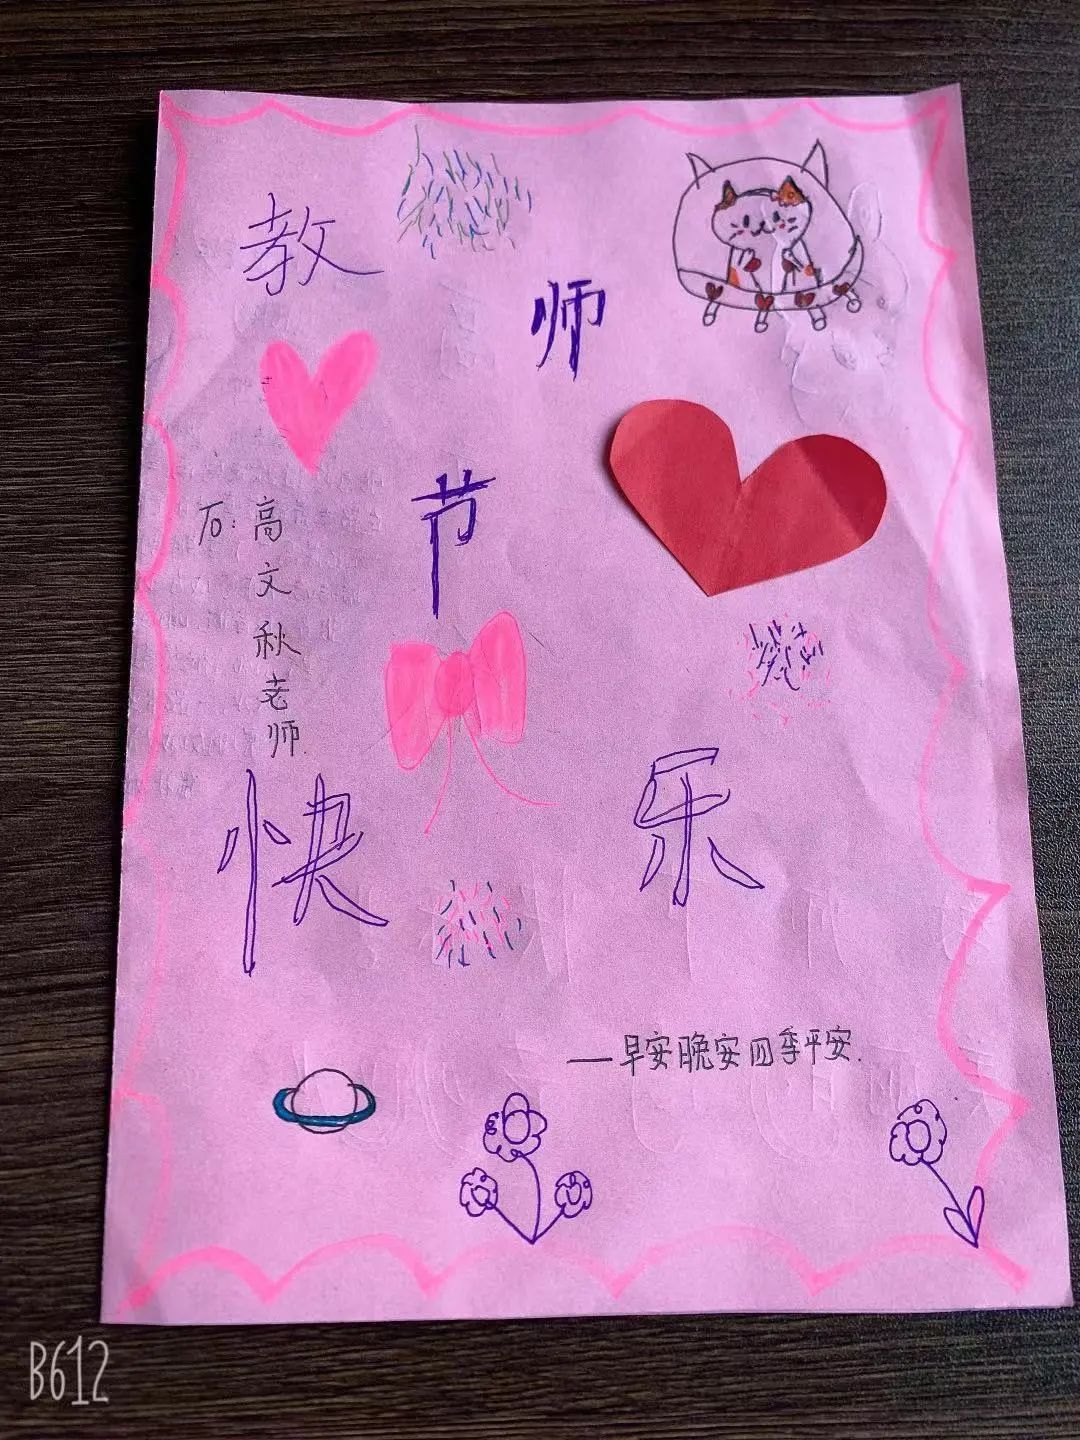 教师节快乐
TO:高文秋老师.
——早安晚安四季平安.
B612